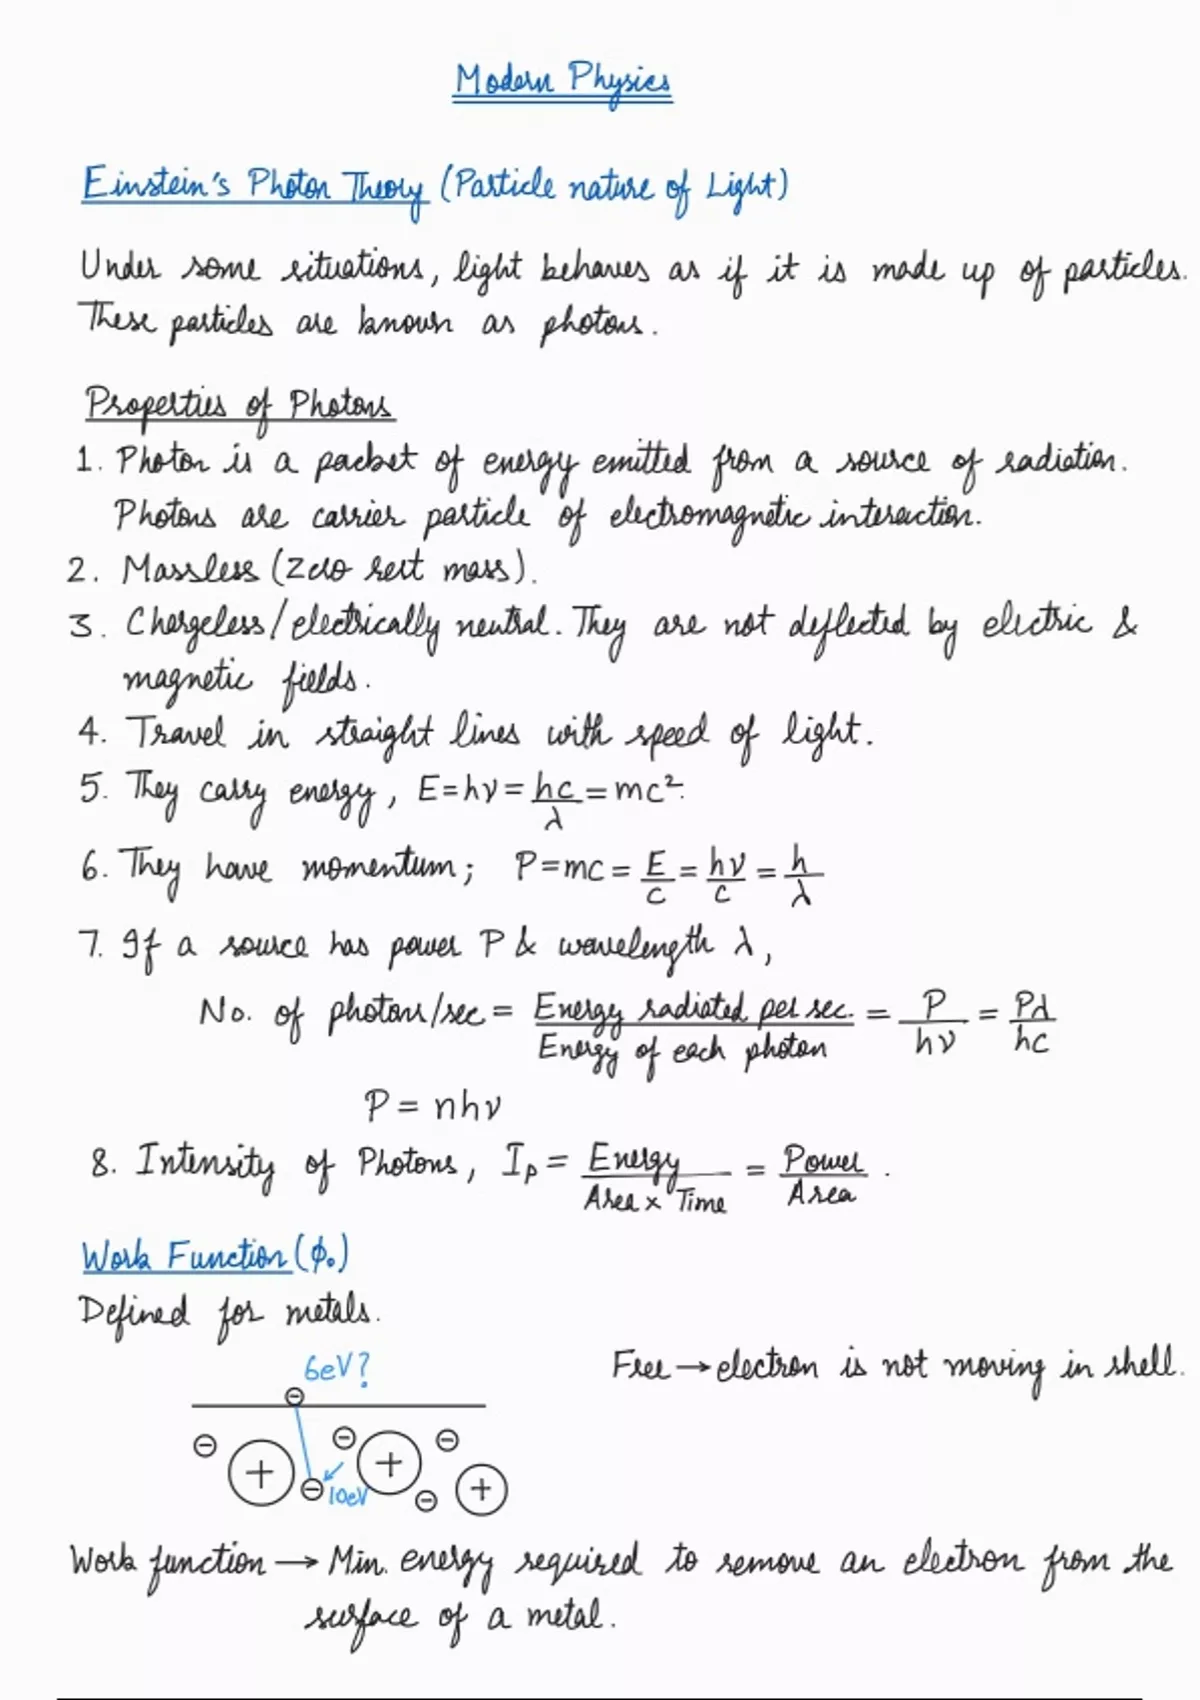 Modern Physics
Einstein's Photon Theory (Particle nature of Light)
Under some situations, light behaves as if it is made up of particles.
These particles are known as photons.
Properties of Photons
1. Photon is a packet of energy emitted from a source of radiation.
Photons are carrier particle of electromagnetic interaction.
2. Massless (Zero rest mass).
3. Chargeless/electrically neutral. They are not deflected by electric &
magnetic fields.
4. Travel in straight lines with speed of light.
5. They carry energy, E = hν = hc/λ = mc².
6. They have momentum; P = mc = E/c = hν/c = h/λ
7. If a source has power P & wavelength λ,
No. of photons/sec = Energy radiated per sec. / Energy of each photon = P/hν = Pλ/hc
P = nhν
8. Intensity of Photons, Iₚ = Energy / Area × Time = Power / Area.
Work Function (ϕ₀)
Defined for metals.
6eV?
Free → electron is not moving in shell.
10eV
Work function → Min. energy required to remove an electron from the
surface of a metal.